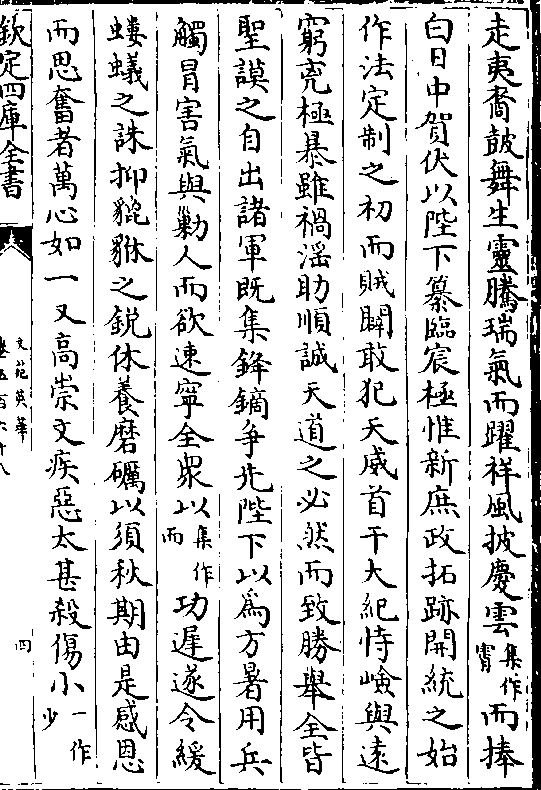 走夷裔鼓舞生靈騰瑞氣而躍祥風披慶雲集作霄而捧
白日中賀伏以陛下纂臨宸極惟新庶政拓跡開統之始
作法定制之初而賊闢敢犯天威首干大紀恃嶮與遠
窮兇極暴雖禍滛助順誠天道之必然而致勝舉全皆
聖謨之自出諸軍既集鋒鏑争先陛下以為方暑用兵
觸冒害氣與勦人而欲速寧全衆以集作而功遲遂令緩
螻蟻之誅抑貔貅之鋭休養磨礪以須秋期由是感恩
而思奮者萬心如一又高崇文疾惡太甚殺傷小一作少
欽定四庫全書
文苑英華
卷五百六十八
四